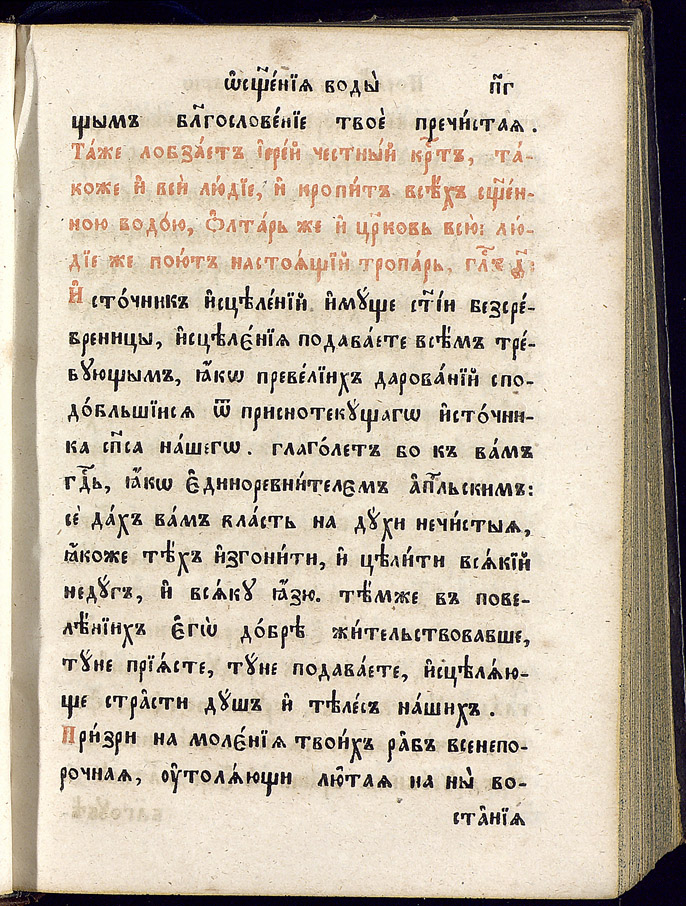 ѡ҆сщ҃е́нїѧ воды̀ п҃г
щымъ бл҃гослове́нїе твоѐ пречи́стаѧ.
Та́же лобза́етъ і҆ере́й честны́й кр҃тъ, та́-
коже и҆ всѝ лю́дїе, и҆ кропи́тъ всѣ́хъ сщ҃е́н-
ною водо́ю, ѻ҆лта́рь же и҆ цр҃ковь всю̀: лю́-
дїе же пою́тъ настоѧ́щїй тропа́рь, гла́съ д҃:
И҆сто́чникъ и҆сцѣле́нїй и҆мꙋ́ще ст҃і́и безсре́-
бреницы, и҆сцѣлє́нїѧ подава́ете всѣ̑мъ тре́-
бꙋющымъ, ꙗ҆́кѡ преве́лїихъ дарова́нїй спо-
до́бльшїисѧ ѿ приснотекꙋ́щагѡ и҆сто́чни-
ка сп҃са на́шегѡ. глаго́летъ бо къ ва́мъ
гд҃ь, ꙗ҆́кѡ є҆диноревни́телємъ а҆п҃льскимъ:
сѐ да́хъ ва́мъ вла́сть на дꙋ́хи нечи̑стыѧ,
ꙗ҆́коже тѣ́хъ и҆згони́ти, и҆ цѣли́ти всѧ́кїй
недꙋ́гъ, и҆ всѧ́кꙋ ꙗ҆́зю. тѣ́мже въ пове-
лѣ́нїихъ є҆гѡ̀ до́брѣ жи́тельствовавше,
тꙋ́не прїѧ́сте, тꙋ́не подава́ете, и҆сцѣлѧ́ю-
ще стра̑сти дꙋ́шъ и҆ тѣле́съ на́шихъ.
При́зри на молє́нїѧ твои́хъ ра̑бъ всенепо-
рочнаѧ, ᲂу҆толѧ́ющи лю̑таѧ на ны̀ во-
ста̑нїѧ